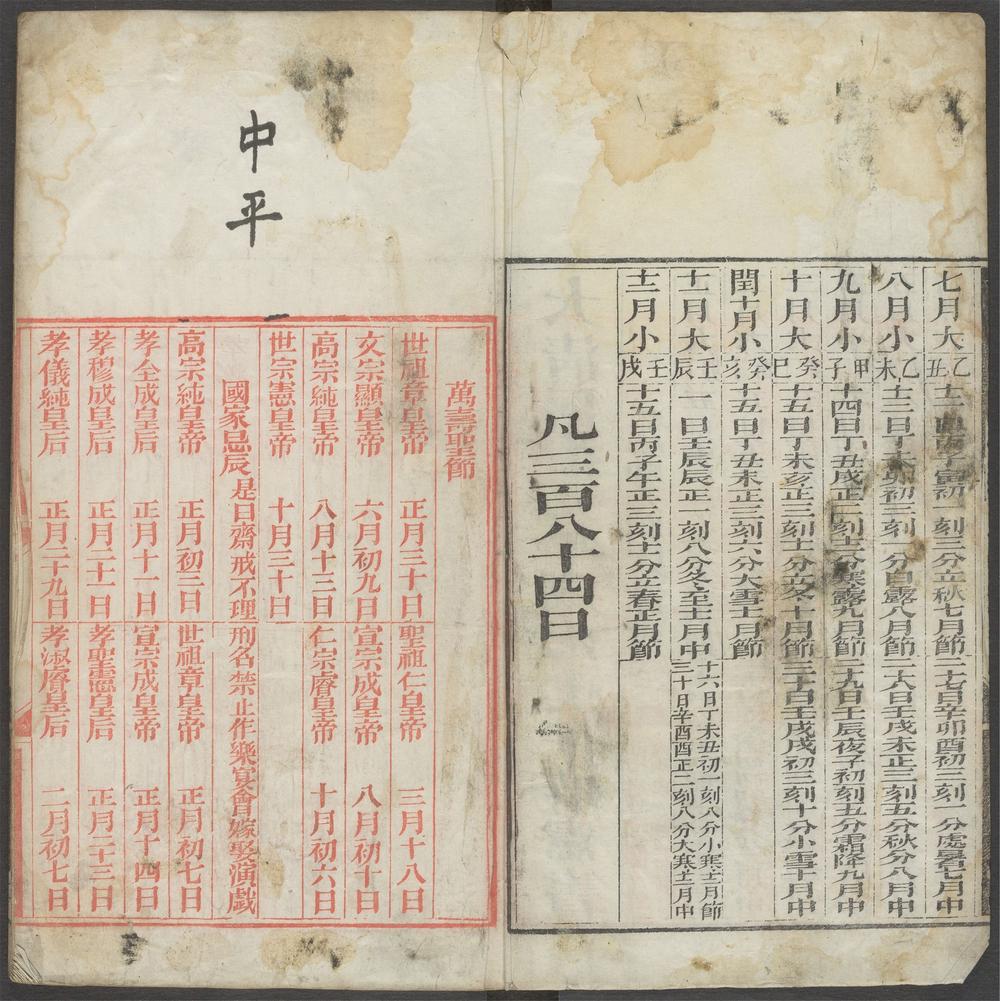 七月大乙丑十二日丙子寅初一刻三分立秋七月節二十七日辛卯酉初三刻一分處暑七月中
八月小乙未十三日丁未卯初三刻一分白露八月節二十八日壬戌未正三刻五分秋分八月中
九月小甲子十四日丁丑戌正二刻十一分寒露九月節二十九日壬辰夜子初刻五分霜降九月中
十月大癸巳十五日丁未亥正三刻十一分立冬十月節三十日壬戌戌初三刻十分小雪十月中
閏十月小癸亥十五日丁丑未正三刻六分大雪十一月節
十一月大壬辰一日壬辰辰正一刻八分冬至十一月中
十六日丁未丑初一刻八分小寒十二月節
三十日辛酉酉正二刻八分大寒十二月中
十二月小壬戌十五日丙子午正三刻十一分立春正月節
凡三百八十四日
中平
萬壽聖節
世祖章皇帝 正月三十日 聖祖仁皇帝 三月十八日
文宗顯皇帝 六月初九日 宣宗成皇帝 八月初十日
高宗純皇帝 八月十三日 仁宗睿皇帝 十月初六日
世宗憲皇帝 十月三十日
國家忌辰 是日齋戒不理刑名禁止作樂宴會嫁娶演戲
高宗純皇帝 正月初三日 世祖章皇帝 正月初七日
孝全成皇后 正月十一日 宣宗成皇帝 正月十四日
孝穆成皇后 正月二十一日 孝聖憲皇后 正月二十三日
孝儀純皇后 正月二十九日 孝淑睿皇后 二月初七日